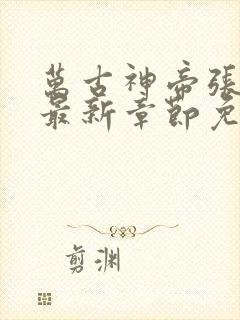 萬古神帝張
最新章節免
剪渊